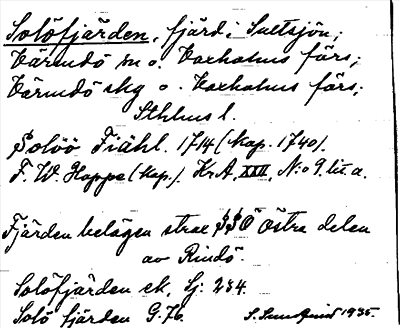 Solöfjärden, fjärd i Saltsjön;
Värmdö sn o. Vaxholms förs;
Värmdö skg o. Vaxholms förs;
Sthlms l.
Solöö Fiähl. 1714 (kop. 1740).
F. W. Hoppe (kop.). KrA, XXII, N:o 9 lit. a.
Fjärden belägen strax SSÖ Östra delen
av Rindö.
Solöfjärden ek. Lj: 234.
Solö fjärden G. 76. S. Sundqvist 1935.